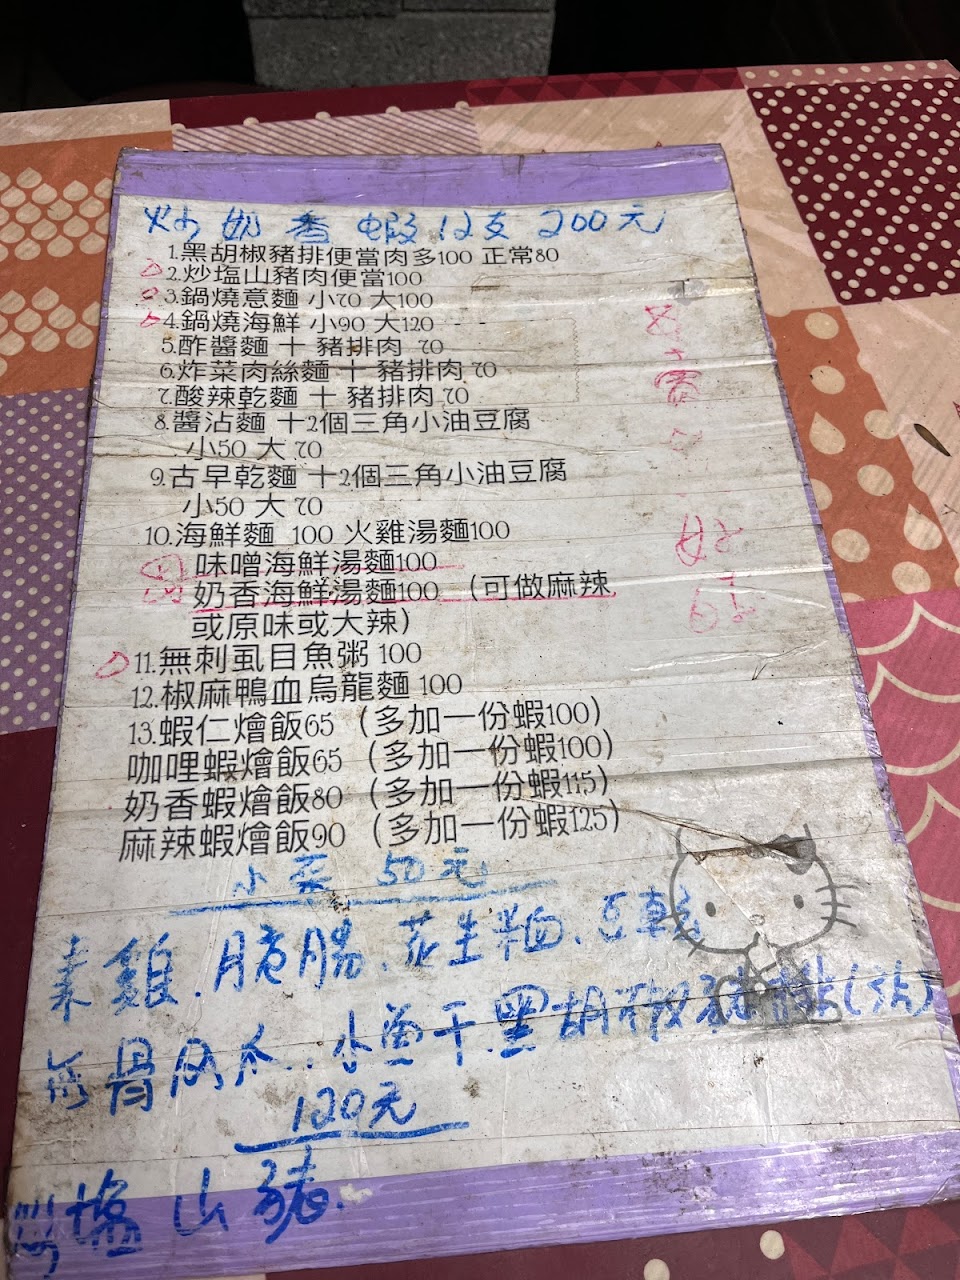 炒奶香蝦12支 200元
1.黑胡椒豬排便當肉多100 正常80
2.炒塩山豬肉便當100
3.鍋燒意麵 小70 大100
4.鍋燒海鮮 小90 大120
5.酢醬麵 十 豬排肉 70
6.炸菜肉絲麵 十 豬排肉 70
7.酸辣乾麵 十 豬排肉 70
8.醬沾麵 十2個三角小油豆腐
小50 大 70
9.古早乾麵 十2個三角小油豆腐
小50 大 70
10.海鮮麵 100 火雞湯麵100
味噌海鮮湯麵100
奶香海鮮湯麵100 （可做麻辣
或原味或大辣）
11.無刺虱目魚粥 100
12.椒麻鴨血烏龍麵 100
13.蝦仁燴飯65（多加一份蝦100）
咖哩蝦燴飯65（多加一份蝦100）
奶香蝦燴飯80（多加一份蝦115）
麻辣蝦燴飯90（多加一份蝦125）
小菜 50元
素雞.脆腸.花生.豆乾
骨鳳爪.小魚干.黑胡椒豬(沾)
120元
塩山豬.